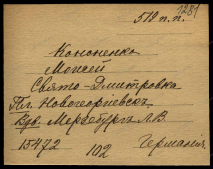 1281
512 п.п.
Кононенко
Моисей
Свято-Дмитровка
Пл. Новогеоргиевск
Вдв. Мерзебургъ Л.В
15472 102 Германія